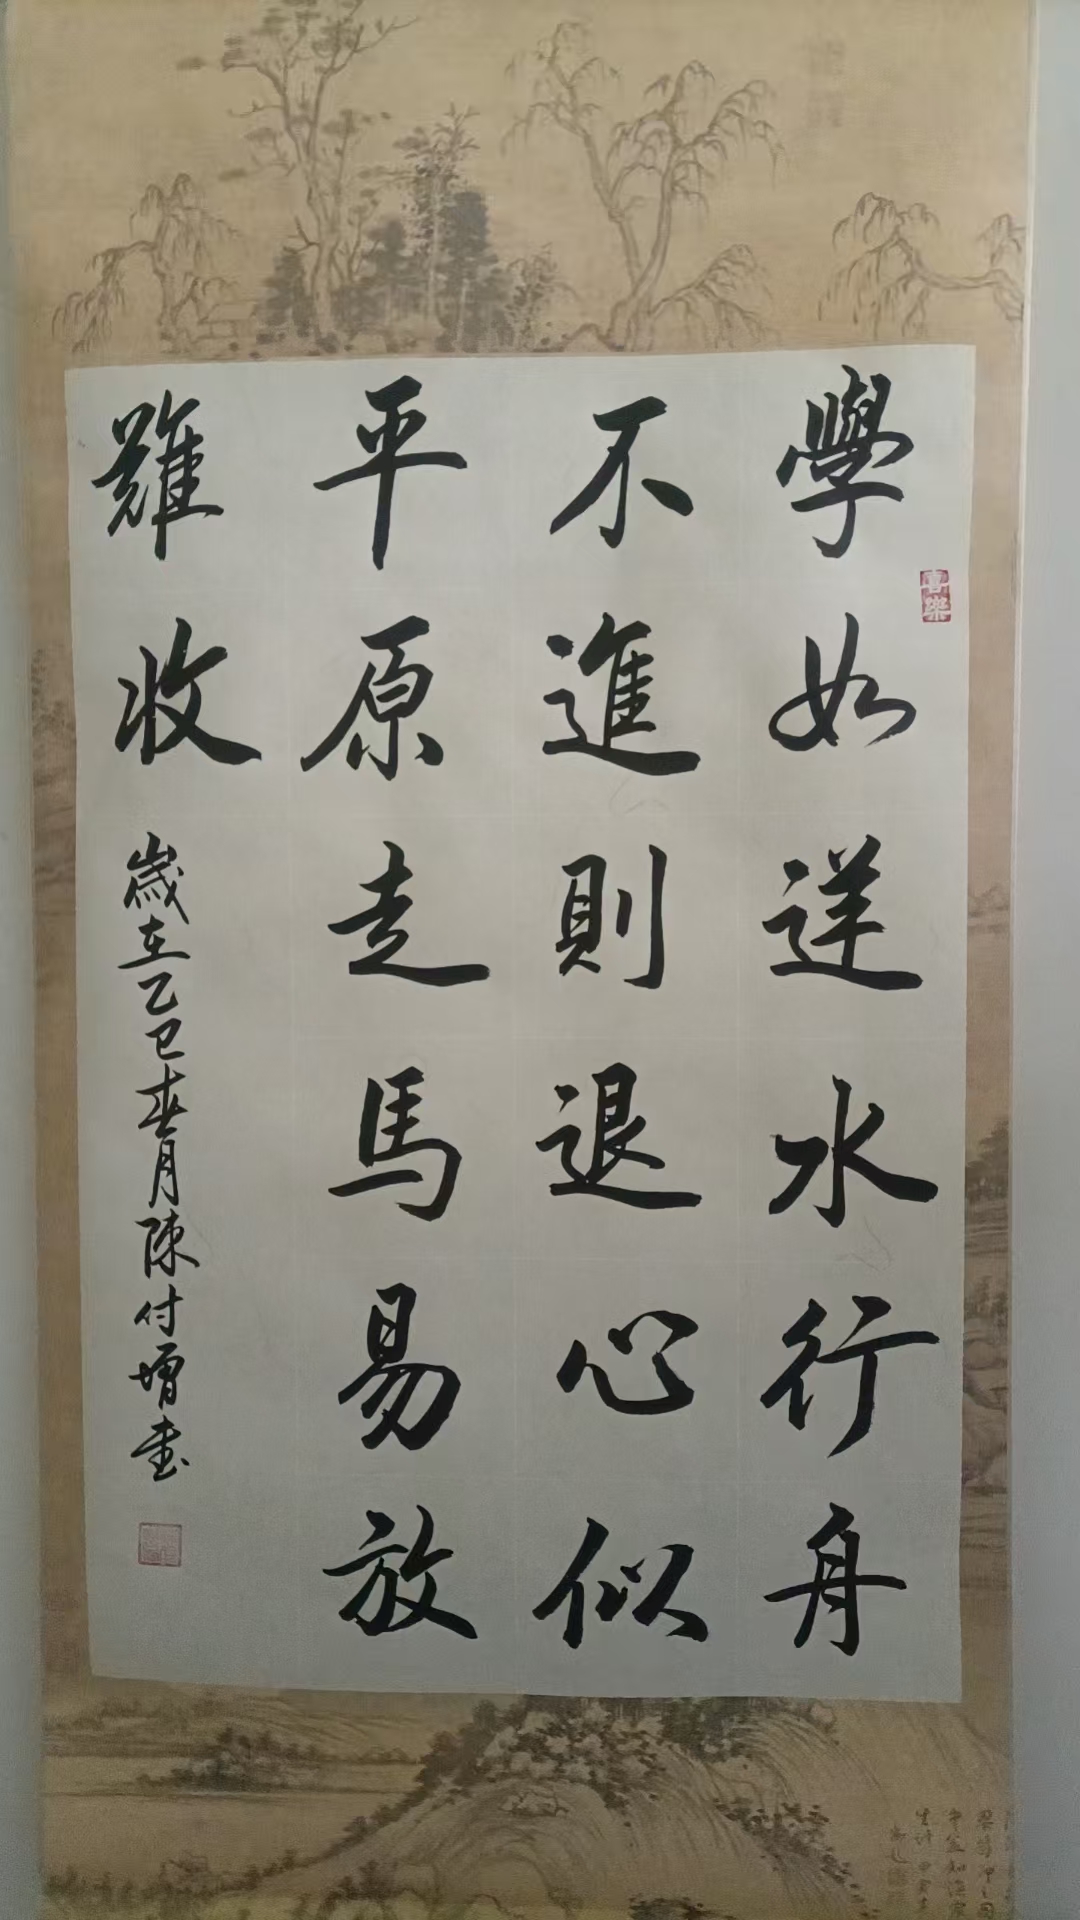 學如逆水行舟
不進則退心似
平原走馬易放
難收
歲在乙巳春月陳付增書
喜樂